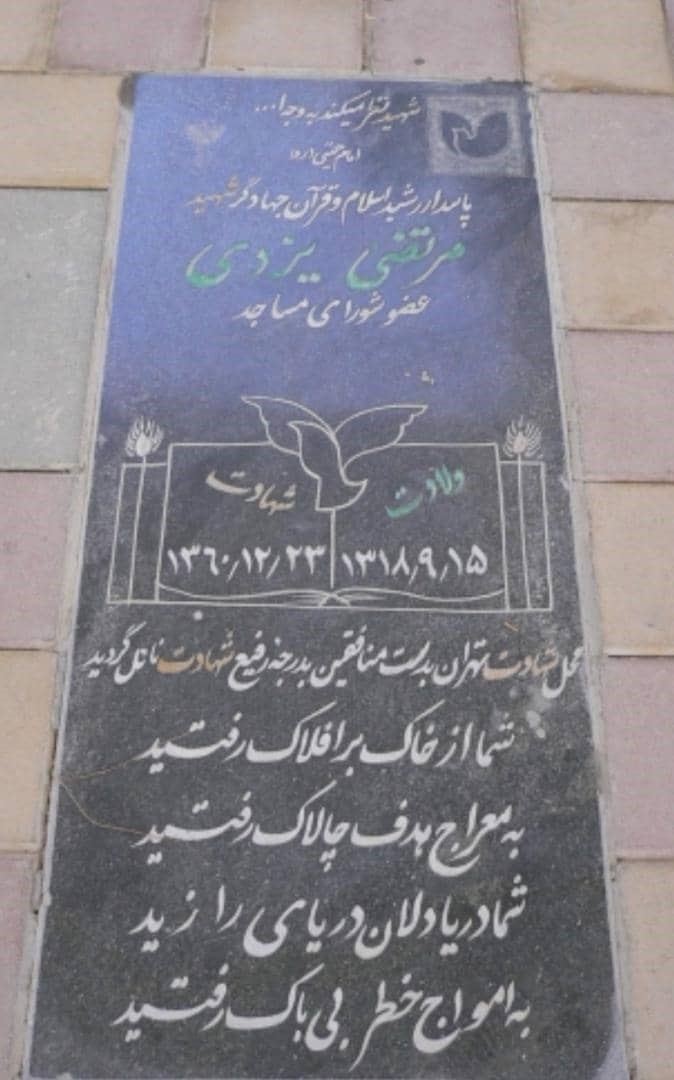 شهید نظر میکند به وجه ا...
امام خمینی (ره)
پاسدار رشید اسلام و قرآن جهادگر شهید
مرتضی یزدی
عضو شورای مساجد
ولادت
شهادت
۱۳۱۸٫۹٫۱۵
۱۳۶۰٫۱۲٫۲۳
محل شهادت تهران بدست منافقین بدرجه رفیع شهادت نائل گردید
شما از خاک بر افلاک رفتید
به معراج هدف چالاک رفتید
شما دریا دلان دریای رازید
به امواج خطر بی باک رفتید